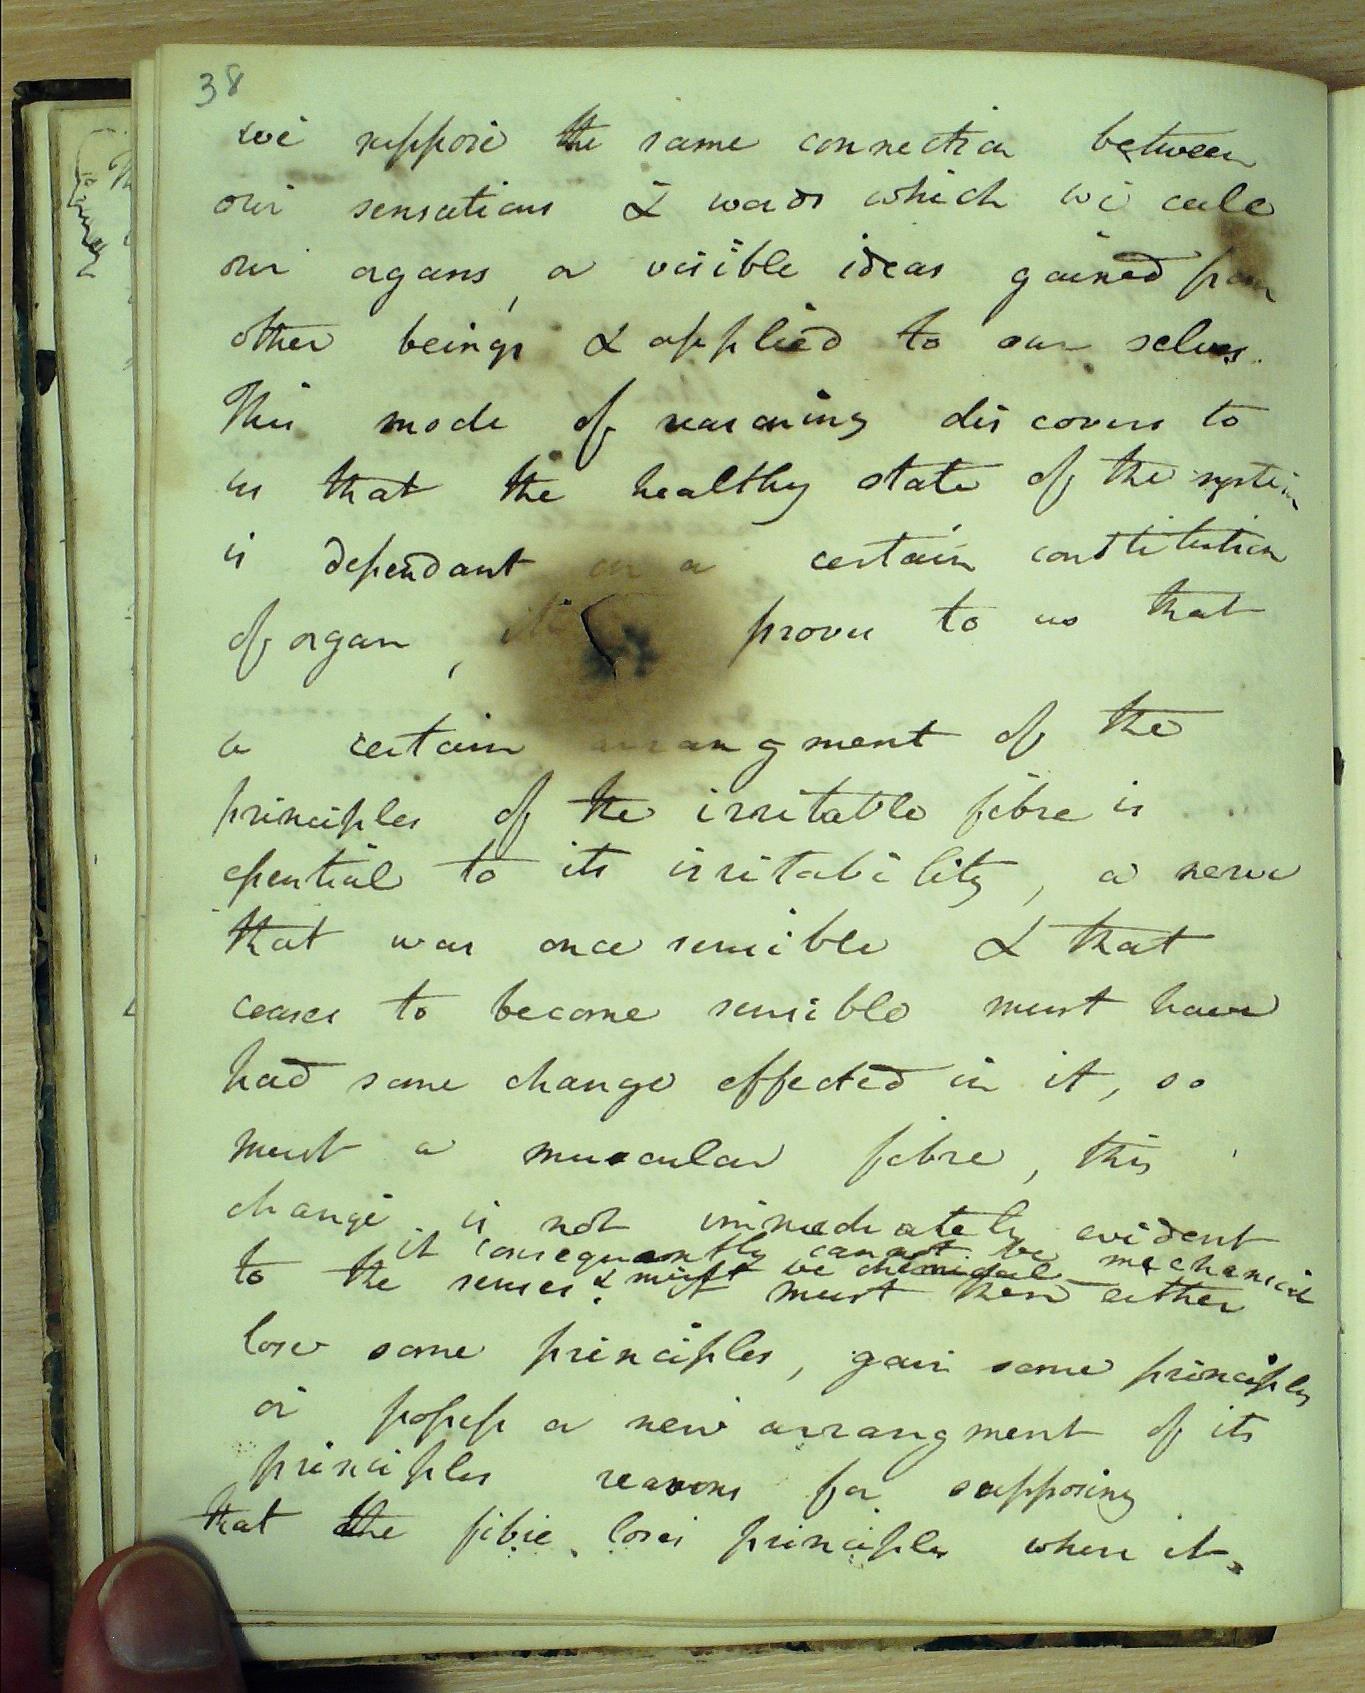 38
we suppose the same connection between
our sensations & words which we call
our organs, or visible ideas gained from
other beings & applied to our selves.
This mode of reasoning dis covers to
us that the healthy state of the system
is dependant on a certain constitution
of organ, it proves to us that
a certain arrangment of the
principles of the irritable fibre is
essential to its irritability, a nerve
that was once sensible & that
ceases to become sensible must have
had some change effected in it, so
must a muscular fibre, this
change is not immediately evident
it consequently cannot be mechanical
& must be chemical
to the senses. must then either
lose some principles, gain some principles
or possess a new arrangment of its
principles reasons for supposing
that the fibre loses principles when it